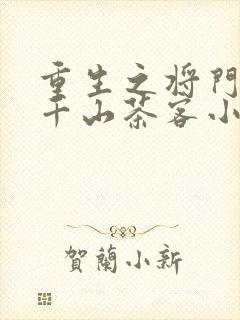 重生之将門
千山茶客小
賀蘭小新